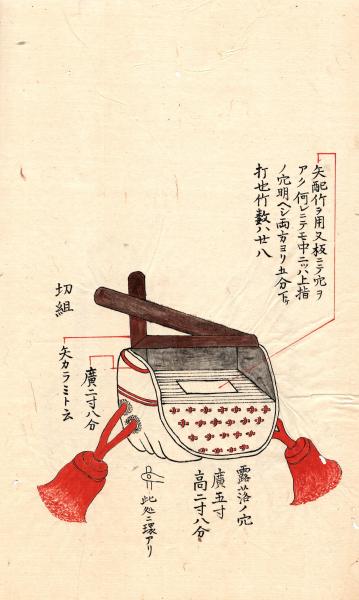 矢配竹ヲ用又板ニテ穴ヲ
アク何レニテモ中二ツハ上指
ノ穴明ヘシ両方ヨリ五分下ケ
打也竹数ハ廿八
切組
矢カラミト云
廣二寸八分
露落ノ穴
廣五寸
高二寸八分
此処ニ環アリ